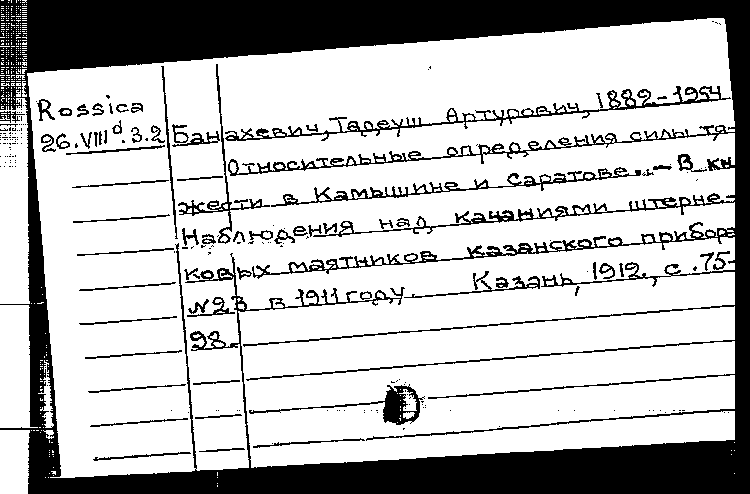 Rossica
26.VIIIᵈ.3.2 Банахевич, Тадеуш Артурович, 1882-1954
Относительные определения силы тя-
жести в Камышине и Саратове.. — В кн
Наблюдения над качаниями штерне-
ковых маятников казанского прибора
№23 в 1911 году. Казань, 1912., с.75-
98.